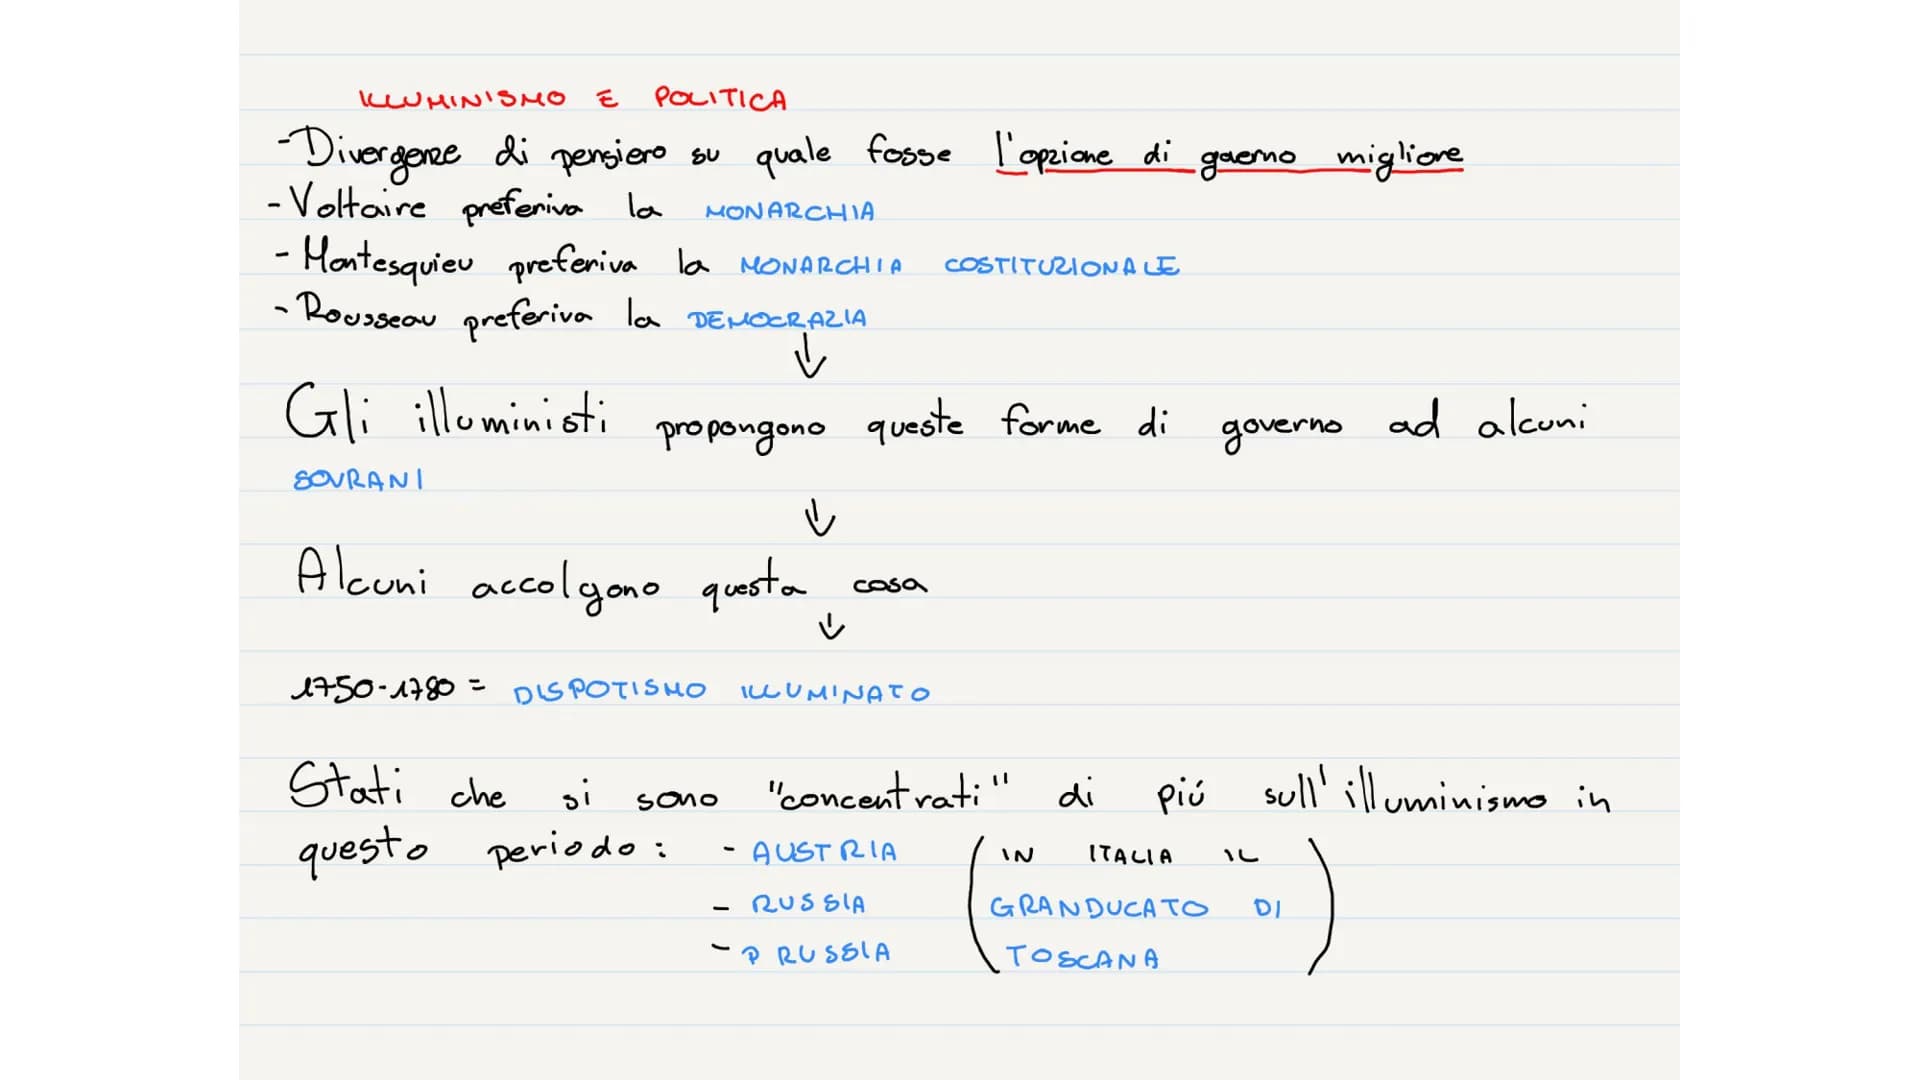 ILLUMINISMO E POLITICA
-Divergenze di pensiero su quale fosse l'opzione di governo migliore
-Voltaire preferiva la MONARCHIA
-Montesquieu preferiva la MONARCHIA COSTITUZIONALE
-Rousseau preferiva la DEMOCRAZIA
↓
Gli illuministi propongono queste forme di governo ad alcuni
SOVRANI
↓
Alcuni accolgono questa cosa
↓
1750-1780 = DISPOTISMO ILLUMINATO
Stati che si sono "concentrati" di più sull'illuminismo in
questo periodo: - AUSTRIA (IN ITALIA IL
- RUSSIA GRANDUCATO DI
- PRUSSIA TOSCANA)